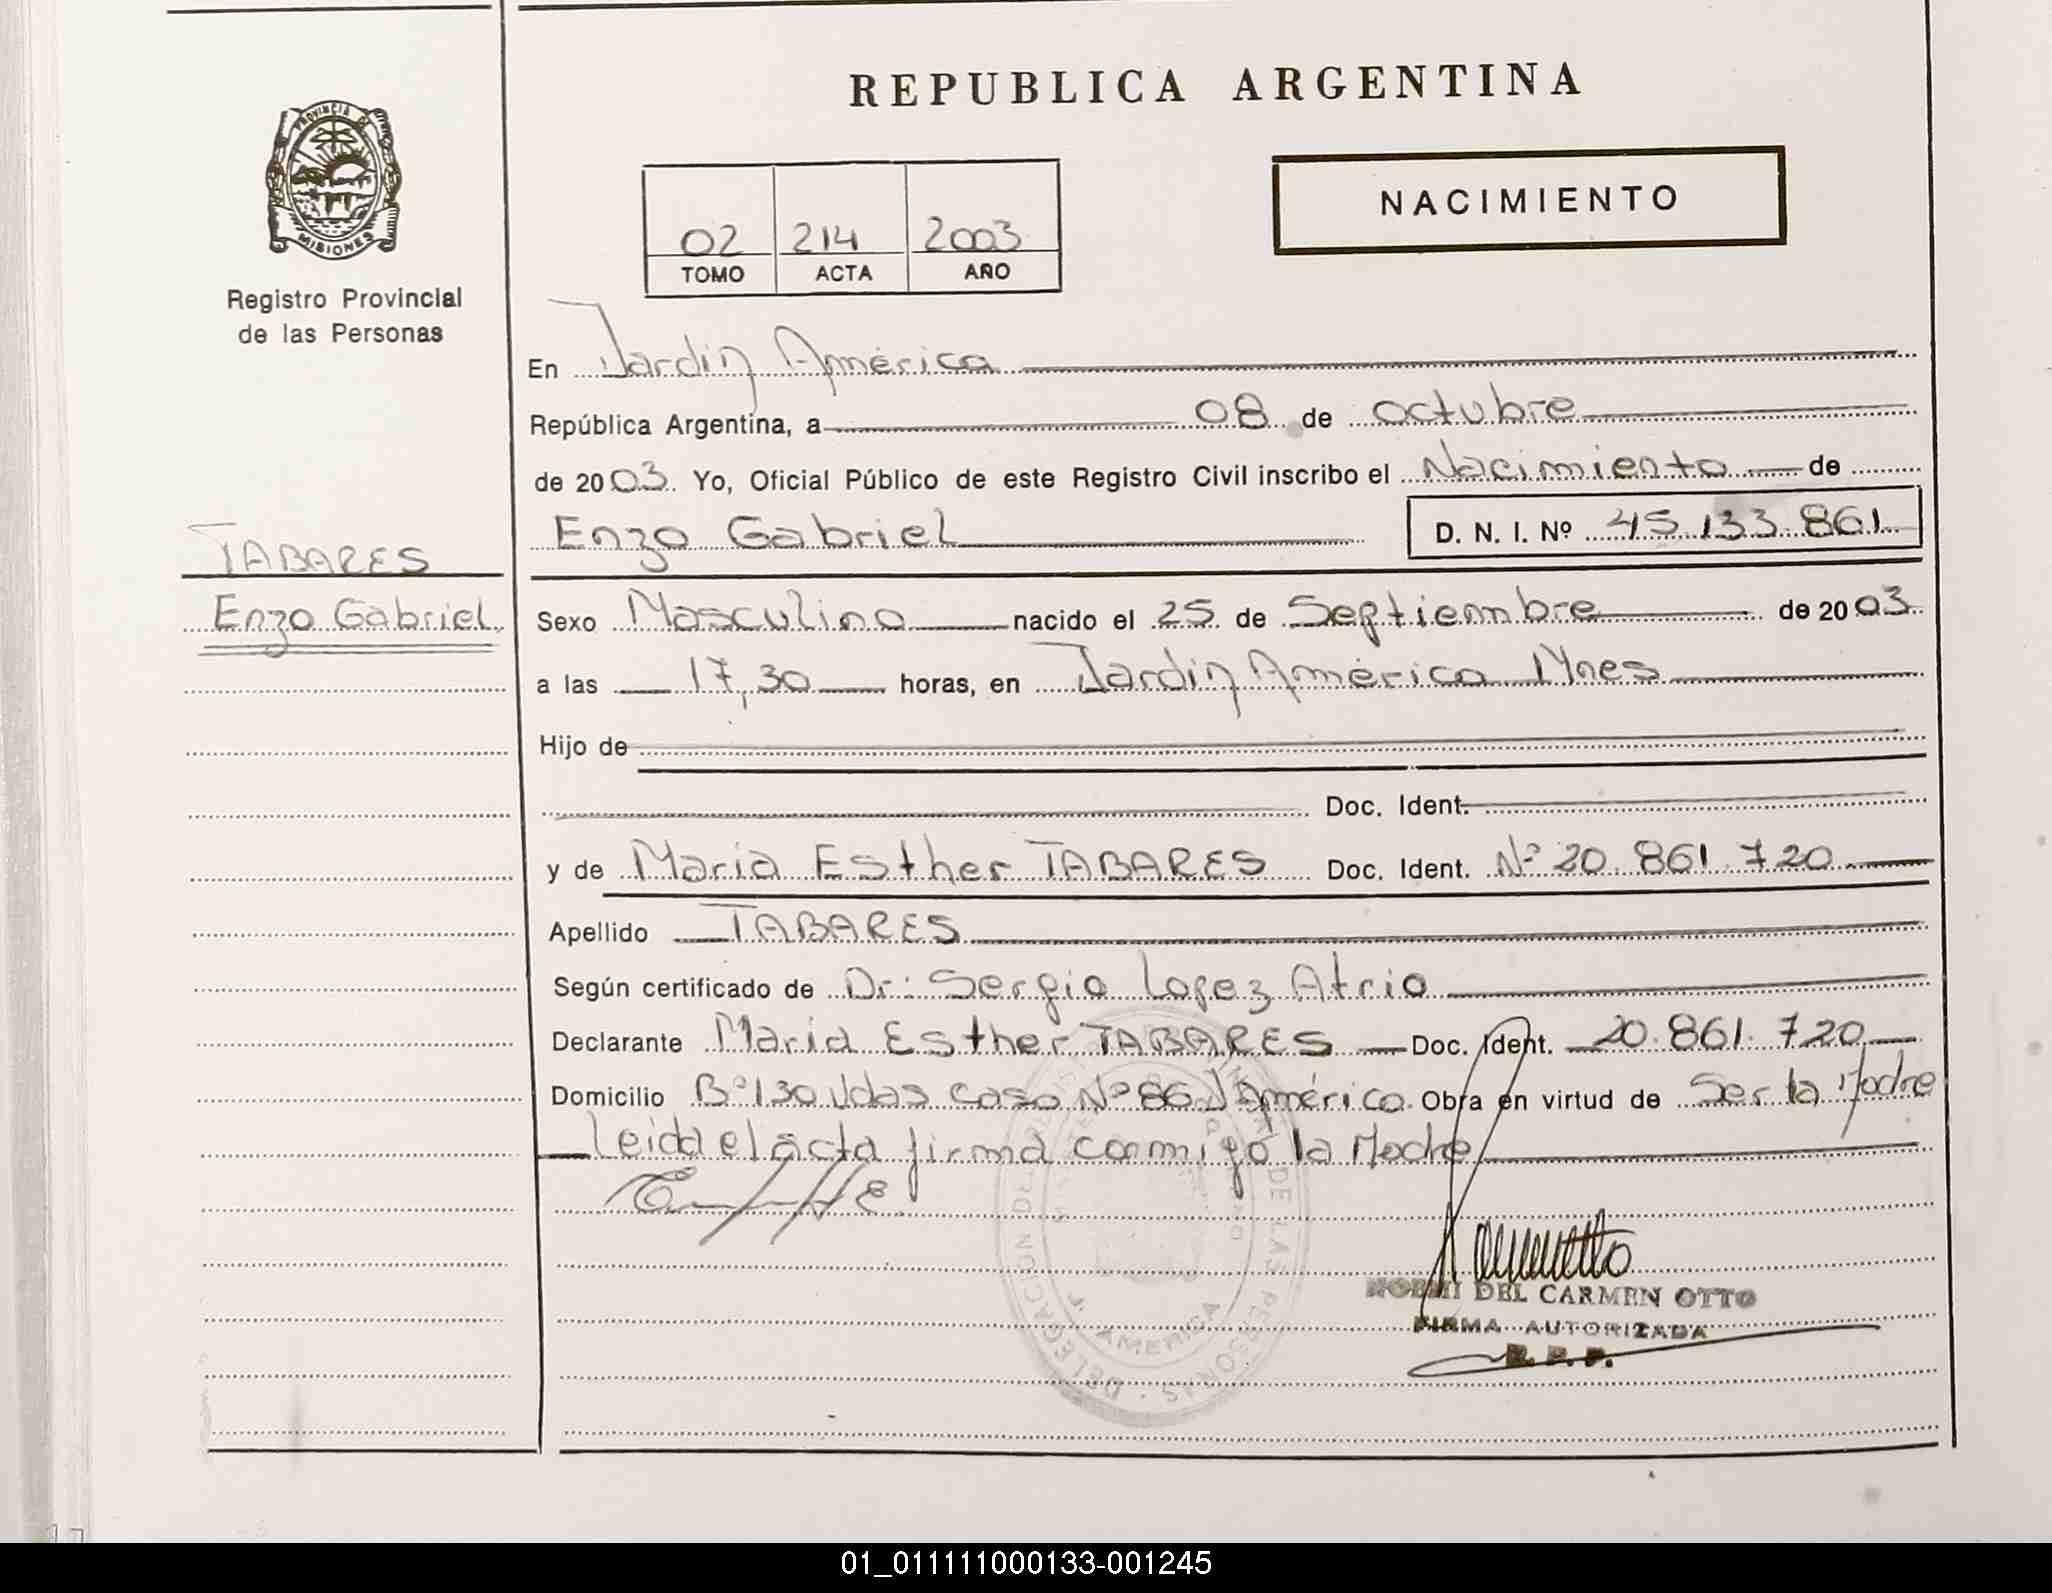 REPUBLICA ARGENTINA
PROVINCIA DE
MISIONES
Registro Provincial
de las Personas
NACIMIENTO
02 214 2003
TOMO ACTA AÑO
En Jardin América
República Argentina, a 08 de octubre
de 2003. Yo, Oficial Público de este Registro Civil inscribo el Nacimiento de
Enzo Gabriel D. N. I. Nº 45.133.861
TABARES
Enzo Gabriel
Sexo Masculino nacido el 25 de Septiembre de 2003
a las 17,30 horas, en Jardin América Mnes
Hijo de
Doc. Ident.
y de Maria Esther TABARES Doc. Ident. Nº 20.861.720
Apellido TABARES
Según certificado de Dr: Sergio Lopez Atrio
Declarante Maria Esther TABARES Doc. Ident. 20.861.720
Domicilio Bº 130 Vdas casa Nº 86 J América Obra en virtud de Ser la Madre
Leida el acta firma conmigo la Madre
DELEGACION DE LAS PERSONAS
J. AMERICA
NOEMI DEL CARMEN OTTO
FIRMA AUTORIZADA
R. P. P.
01_011111000133-001245